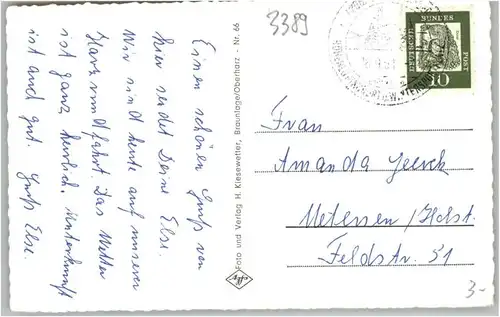 3389
Einen schönen Gruß von
hier sendet Deine Else.
Wir sind heute auf unserer
Harzrundfahrt. Das Wetter
ist ganz herrlich. Unterkunft
ist auch gut Gruß Else.
Foto und Verlag H. Kiesewetter, Braunlage/Oberharz - Nr. 66
DEUTSCHE
BUNDES
POST
10
Frau
Amanda
Uetersen/Holst.
Feldstr. 51
3.-